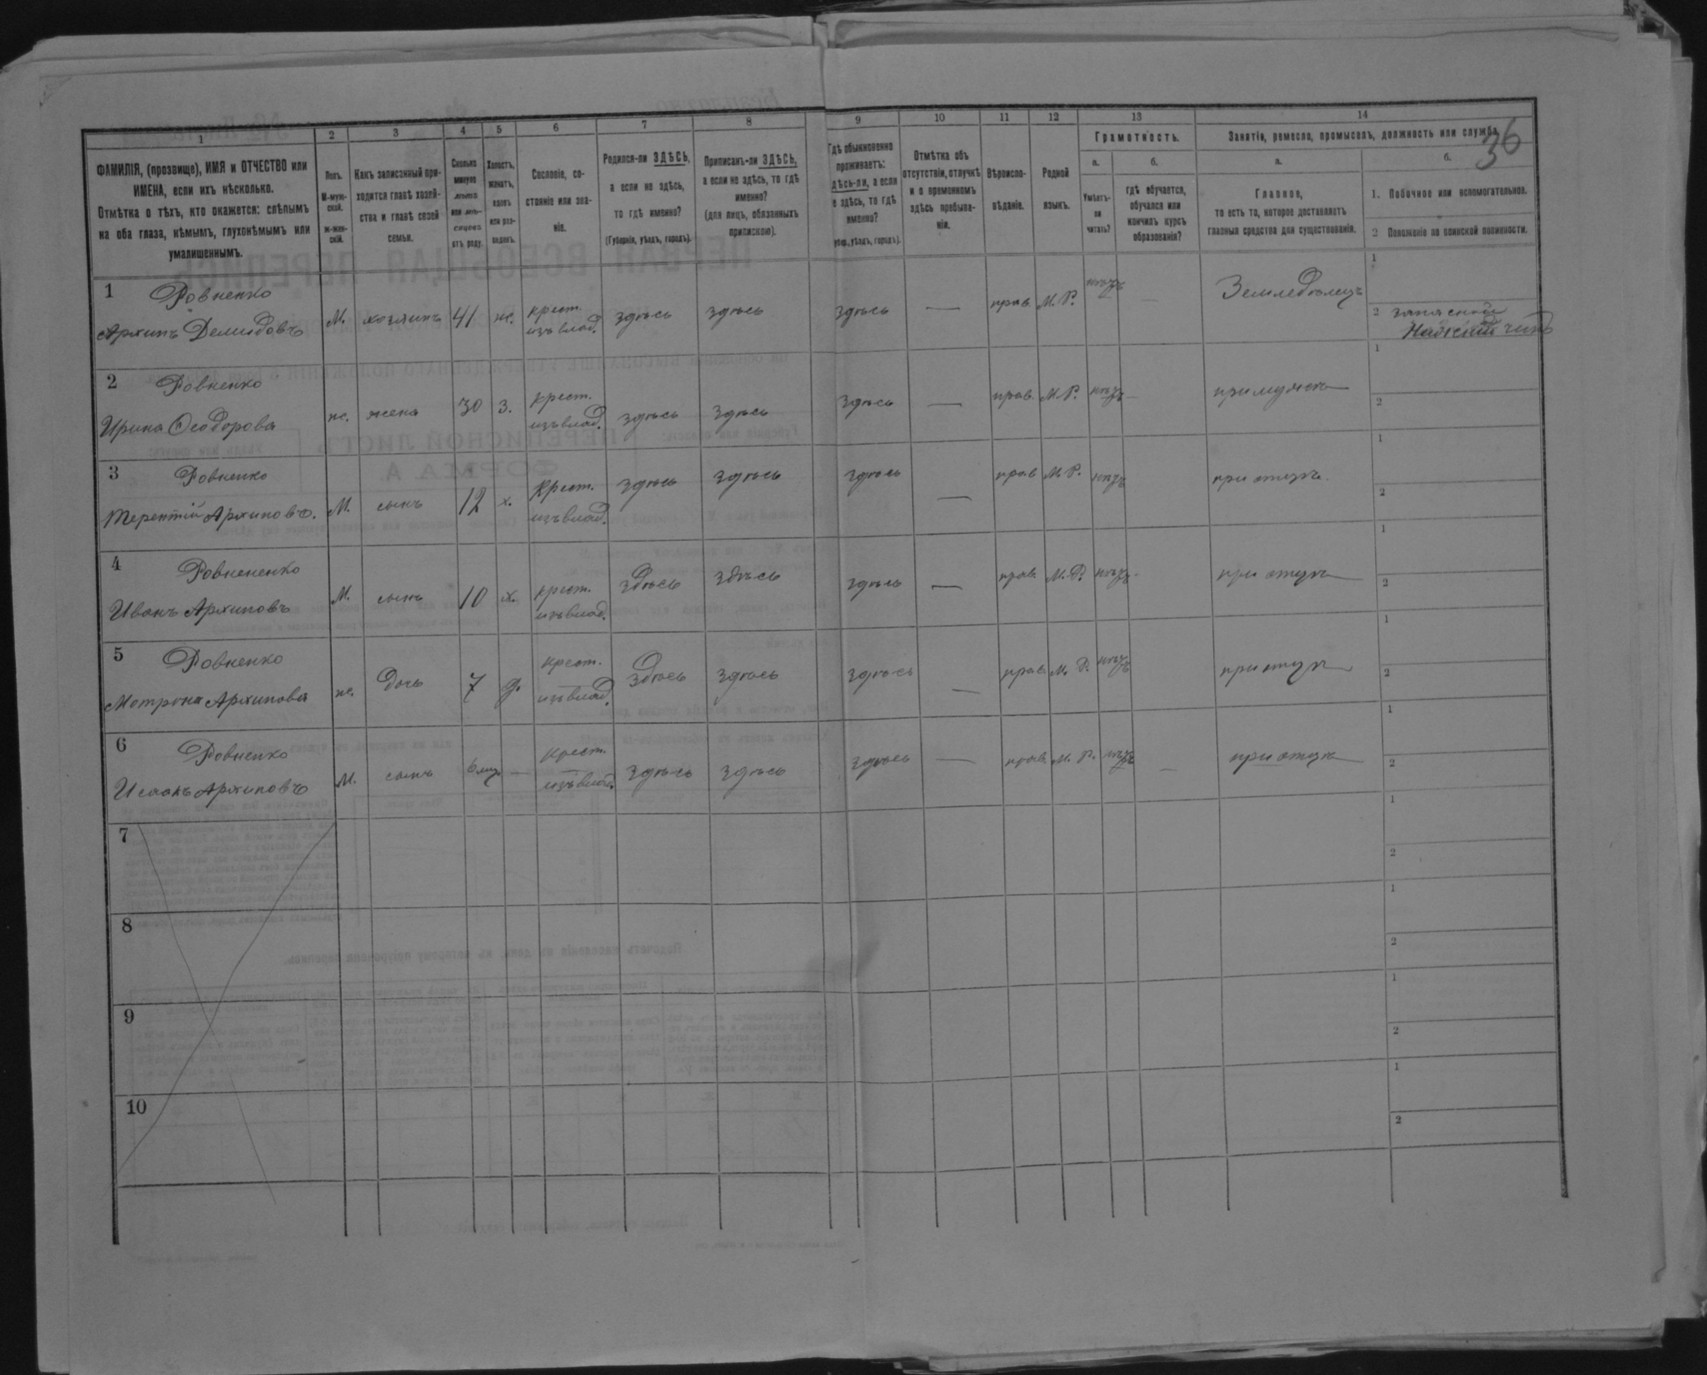 36
1
2
3
4
5
6
7
8
9
10
11
12
13
14
ФАМИЛІЯ, (прозвище), ИМЯ и ОТЧЕСТВО или
ИМЕНА, если ихъ нѣсколько.
Отмѣтка о тѣхъ, кто окажется: слѣпымъ
на оба глаза, нѣмымъ, глухонѣмымъ или
умалишеннымъ.
Полъ.
М-муж-
ской.
ж-жен-
скій.
Какъ записанный при-
ходится главѣ хозяй-
ства и главѣ своей
семьи.
Сколько
минуло
лѣтъ
или мѣ-
сяцевъ
отъ роду.
Холостъ,
женатъ,
вдовъ
или раз-
веденъ.
Сословіе, со-
стояніе или зва-
ніе.
Родился-ли ЗДѢСЬ,
а если не здѣсь,
то гдѣ именно?
(Губернія, уѣздъ, городъ).
Приписанъ-ли ЗДѢСЬ,
а если не здѣсь, то гдѣ
именно?
(для лицъ, обязанныхъ
припискою).
Гдѣ обыкновенно
проживаетъ:
здѣсь-ли, а если
не здѣсь, то гдѣ
именно?
(Губер., уѣздъ, городъ).
Отмѣтка объ
отсутствіи, отлучкѣ
и о временномъ
здѣсь пребыва-
ніи.
Вѣроиспо-
вѣданіе.
Родной
языкъ.
Грамотность.
а.
Умѣетъ-
ли
читать?
б.
гдѣ обучается,
обучался или
кончилъ курсъ
образованія?
Занятіе, ремесло, промыселъ, должность или служба.
а.
Главное,
то есть то, которое доставляетъ
главныя средства для существованія.
б.
1. Побочное или вспомогательное.
2 Положеніе по воинской повинности.
1 Ровненко
Архипъ Демидовъ М. хозяинъ 41 ж. крест. изъ влад. здѣсь здѣсь здѣсь — прав. М.Р. нѣтъ — Земледѣлецъ
1
2 запасной
Нижній чинъ
2 Ровненко
Ирина Ѳеодорова ж. жена 30 з. крест. изъ влад. здѣсь здѣсь здѣсь — прав. М.Р. нѣтъ — при мужѣ
1
2
3 Ровненко
Терентій Архиповъ. М. сынъ 12 х. крест. изъ влад. здѣсь здѣсь здѣсь — прав М.Р. нѣтъ при отцѣ
1
2
4 Ровнененко
Иванъ Архиповъ М. сынъ 10 х. крест. изъ влад. здѣсь здѣсь здѣсь — прав. М.Р. нѣтъ - при отцѣ
1
2
5 Ровненко
Матрона Архипова ж. дочь 7 д. крест. изъ влад. здѣсь здѣсь здѣсь — прав М.Р. нѣтъ при отцѣ
1
2
6 Ровненко
Исаакъ Архиповъ М. сынъ 6 мц. — крест. изъ влад. здѣсь здѣсь здѣсь — прав. М.Р. нѣтъ — при отцѣ
1
2
7
1
2
8
1
2
9
1
2
10
1
2